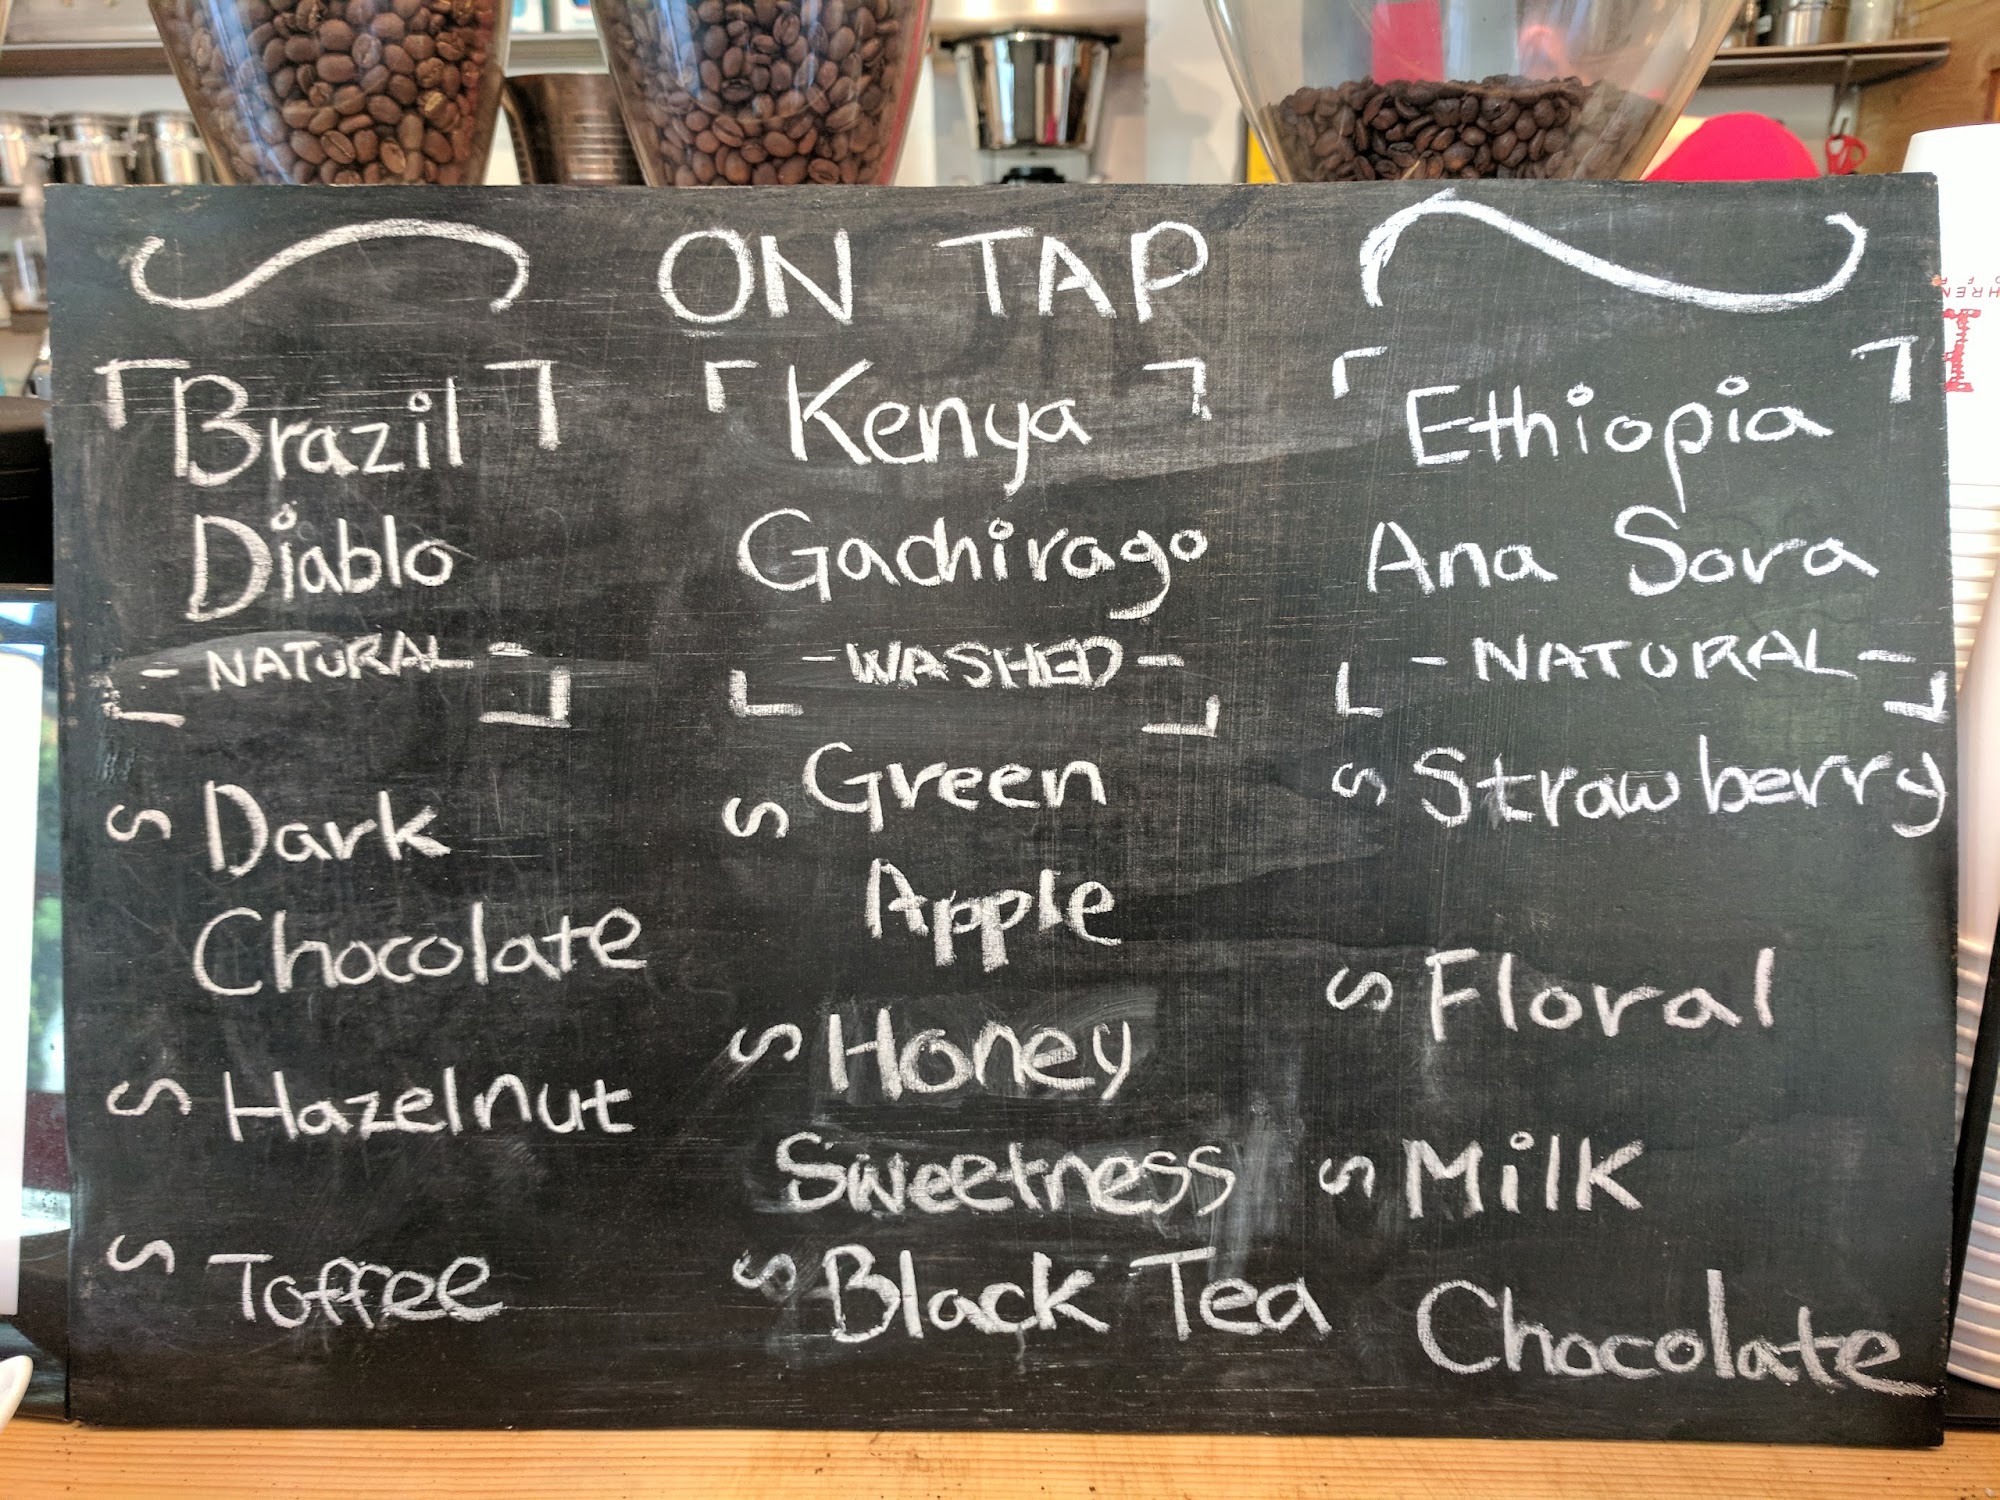 ON TAP
Brazil
Diablo
- NATURAL -
S Dark
Chocolate
S Hazelnut
S Toffee
Kenya
Gachirago
- WASHED -
S Green
Apple
S Honey
Sweetness
S Black Tea
Ethiopia
Ana Sora
- NATURAL -
S Strawberry
S Floral
S Milk
Chocolate